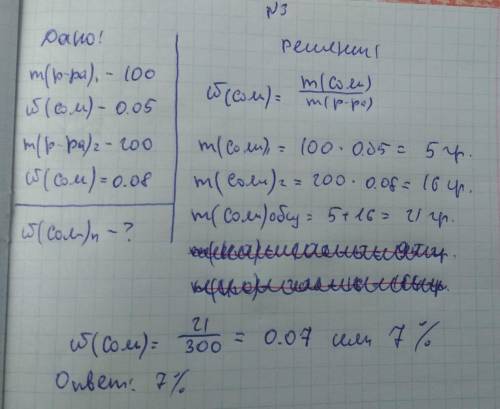 №3
Дано:
m(р-ра)₁ - 100
ω(соли) - 0.05
m(р-ра)₂ - 200
ω(соли) = 0.08
ω(соли)п - ?
решение:
ω(соли) = m(соли) / m(р-ра)
m(соли)₁ = 100 · 0.05 = 5 гр.
m(соли)₂ = 200 · 0.08 = 16 гр.
m(соли)общ = 5+16 = 21 гр.
ω(соли) = 21/300 = 0.07 или 7%
Ответ: 7%